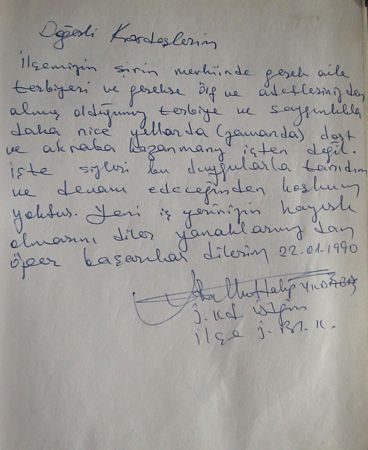 Değerli Kardeşlerim
İlçemizin şirin mevkiinde gerek aile
terbiyeri ve gerekse örf ve adetlerinizden
almış olduğunuz terbiye ve saygınlıkla
daha nice yıllarda (zamanda) dost
ve akraba kazanmanız işten değil.
işte sizleri bu duygularla tanıdım
ve devam edeceğinden kuşkum
yoktur. Yeni iş yerinizin hayırlı
olmasını diler yanaklarınızdan
öper başarılar dilerim 22.01.1990
J.
ilçe J. Bl. K.